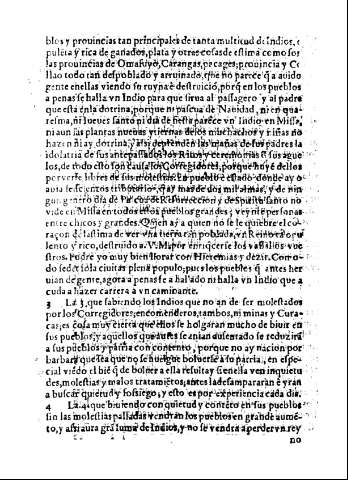 blos y prouincias tan principales de tanta multitud de Indios, o
puleta y rica de ganados, plata y otras cosas de estima como son
las prouincias de Omasuyo, Carangas, pacages, prouincia y Co
llao todo tan despoblado y arruinado, que no parece q̃ a auido
gente en ellas viendo su ruyna e destruició, porq̃ en los pueblos
a penas se halla vn Indio para que sirua al passagero y al padre
que está en la dotrina, porque ni pascua de Nauidad, ni en qua-
resma, ni jueues santo ni dia de fiesta parece vn Indio en Missa,
ni aun las plantas nueuas y tiernas de los muchachos y niñas no
hazen ni ay dotrina, y assi deprenden las mañas de sus padres la
idolatria de sus antepassados los Ritos y ceremonias de sus ague
los, de todo ello son causa los Corregidores, porque huyẽ dellos
por verse libres de sus molestias. En pueblo e estado donde ay o
auia seiscientos tributarios, q̃ ay mas de dos mil almas, y de nin
gun genero dia de la
vide en Missa en todos estos pueblos grandes, veynte personas
entre chicos y grandes. Quien ay a quien no se le quiebre el co-
raçon de lastima de ver vna tierra tan poblada, vn Reino
lento y rico, destruido. a V.M. por enriquecerse los vasallos vue
stros. Podrè yo muy bien llorar con Hieremias y dezir. Como-
do sedet sola ciuitas plena populo, pues los pueblos q̃ antes her
uian de gente, agora a penas se a halado ni halla vn Indio que a
cuda a hazer carrera a vn caminante.
3 La 3. que sabiendo los Indios que no an de ser molestados
por los Corregidores, encomenderos, tambos, ni minas y Cura-
cas, es cosa muy cierta que ellos se holgaran mucho de biuir en
sus pueblos, y aquellos que antes se anian ausentado se reduzirá
a sus pueblos y patria con contento, porque no ay nacion por
barbara que sea que no se huelgue boluerse a su patria, en espe-
cial viẽdo el biẽ q̃ de boluer a ella resulta, y si en ella ven inquietu
des, molestias y malos tratamiẽtos, antes la desampararan è yran
a buscar quietud y sossiego, y esto es por experiencia cada dia.
4 La 4. que biuiendo con quietud y contẽto en sus pueblos
sin las molestias passadas vendran los pueblos en grande aumẽ-
to, y assi aura grã suma de Indios, y no se vendra a perder vn rey
no